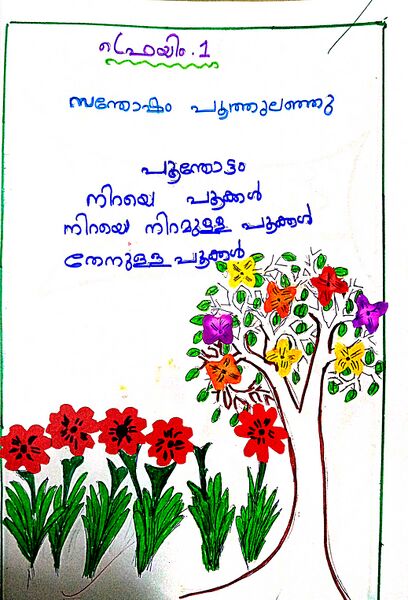 ഫ്രെയിം.1
സന്തോഷം പൂത്തുലഞ്ഞു
പൂന്തോട്ടം
നിറയെ പൂക്കൾ
നിറയെ നിറമുള്ള പൂക്കൾ
തേനുള്ള പൂക്കൾ